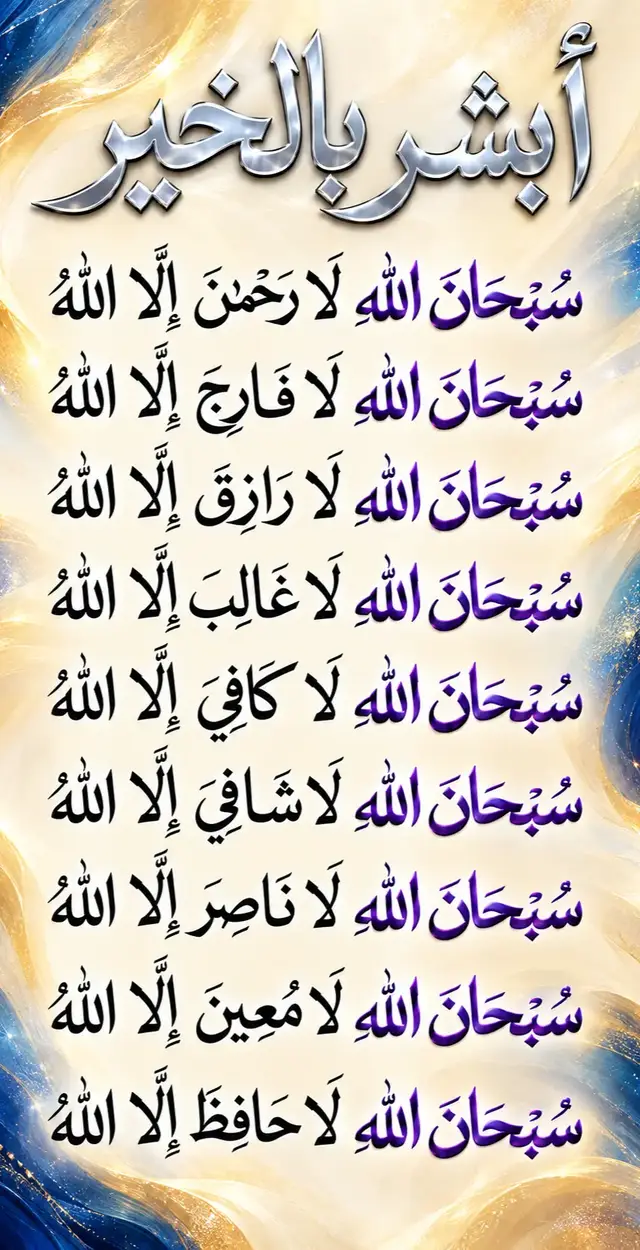 أبشر بالخير
سُبْحَانَ اللهِ لَا رَحْمٰنَ إِلَّا اللهُ
سُبْحَانَ اللهِ لَا فَارِجَ إِلَّا اللهُ
سُبْحَانَ اللهِ لَا رَازِقَ إِلَّا اللهُ
سُبْحَانَ اللهِ لَا غَالِبَ إِلَّا اللهُ
سُبْحَانَ اللهِ لَا كَافِيَ إِلَّا اللهُ
سُبْحَانَ اللهِ لَا شَافِيَ إِلَّا اللهُ
سُبْحَانَ اللهِ لَا نَاصِرَ إِلَّا اللهُ
سُبْحَانَ اللهِ لَا مُعِينَ إِلَّا اللهُ
سُبْحَانَ اللهِ لَا حَافِظَ إِلَّا اللهُ